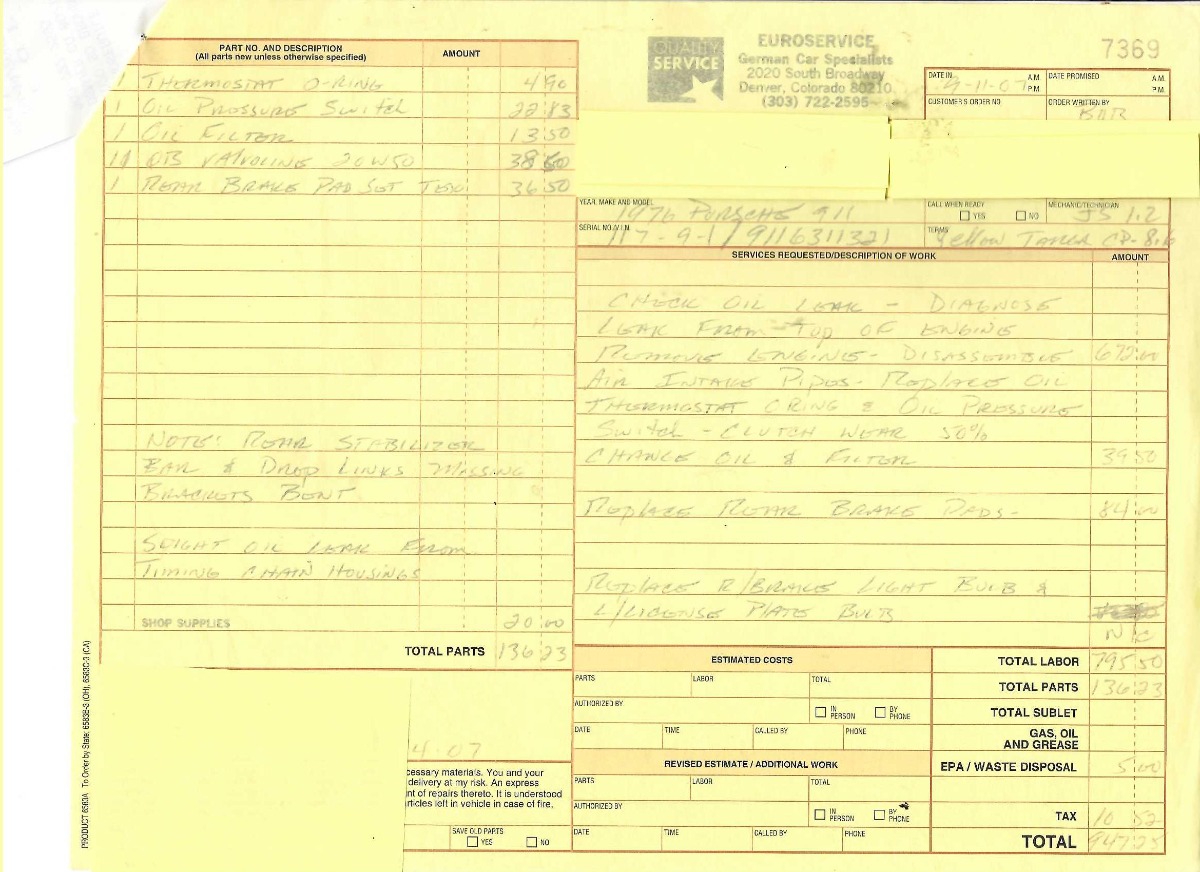 PART NO. AND DESCRIPTION
(All parts new unless otherwise specified)
AMOUNT
1 THERMOSTAT O-RING 4 90
1 OIL PRESSURE SWITCH 22 83
1 OIL FILTER 13 50
11 QTS VALVOLINE 20W50 38 50
1 REAR BRAKE PAD SET TEX 36 50
NOTE: REAR STABILIZER
BAR & DROP LINKS MISSING
BRACKETS BENT
SLIGHT OIL LEAK FROM
TIMING CHAIN HOUSINGS
SHOP SUPPLIES 20 00
TOTAL PARTS 136 23
PRODUCT 6583A To Order by State: 6583B-3 (OH), 6583C-3 (CA)
4-07
cessary materials. You and your
delivery at my risk. An express
nt of repairs thereto. It is understood
rticles left in vehicle in case of fire,
SAVE OLD PARTS
YES NO
QUALITY
SERVICE
EUROSERVICE
German Car Specialists
2020 South Broadway
Denver, Colorado 80210
(303) 722-2595
7369
DATE IN 9-11-07 A.M. P.M.
DATE PROMISED A.M. P.M.
CUSTOMER'S ORDER NO.
ORDER WRITTEN BY
YEAR, MAKE AND MODEL 1976 PORSCHE 911
CALL WHEN READY YES NO
MECHANIC/TECHNICIAN JS 1.2
SERIAL NO./V.I.N. 117-9-1/9116311321
TERMS Yellow
SERVICES REQUESTED/DESCRIPTION OF WORK
AMOUNT
CHECK OIL LEAK - DIAGNOSE
LEAK FROM TOP OF ENGINE
REMOVE ENGINE - DISASSEMBLE 672 00
AIR INTAKE PIPES - REPLACE OIL
THERMOSTAT O RING & OIL PRESSURE
SWITCH - CLUTCH WEAR 50%
CHANGE OIL & FILTER 39 50
REPLACE REAR BRAKE PADS - 84 00
REPLACE R/BRAKE LIGHT BULB &
L/LICENSE PLATE BULB
N/C
ESTIMATED COSTS
PARTS LABOR TOTAL
AUTHORIZED BY IN PERSON BY PHONE
DATE TIME CALLED BY PHONE
REVISED ESTIMATE / ADDITIONAL WORK
PARTS LABOR TOTAL
AUTHORIZED BY IN PERSON BY PHONE
DATE TIME CALLED BY PHONE
TOTAL LABOR 795 50
TOTAL PARTS 136 23
TOTAL SUBLET
GAS, OIL
AND GREASE
EPA / WASTE DISPOSAL 5 00
TAX 10 52
TOTAL 947 25